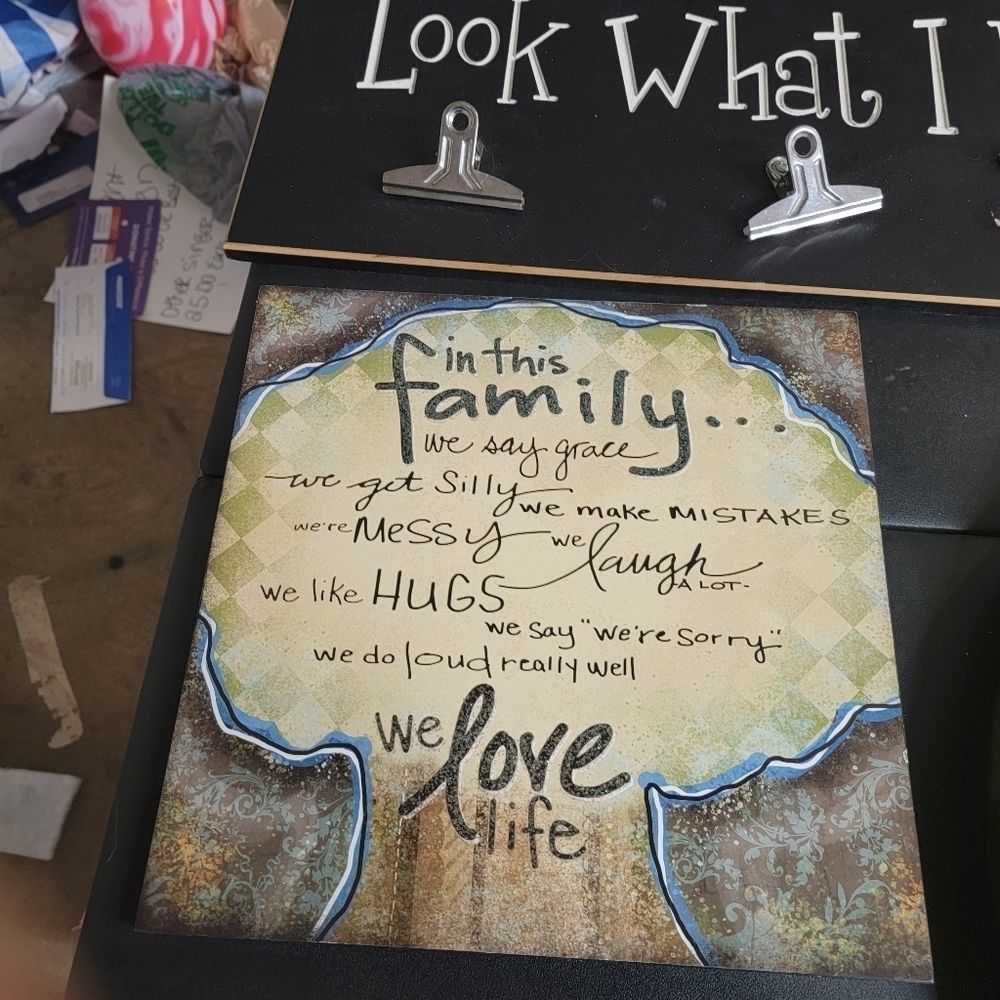 Look What I
in this
family...
we say grace
we get Silly
we make MISTAKES
we're MeSSy we laugh
A LOT-
we like HUGS
we say "we're sorry"
we do loud really well
we love
life